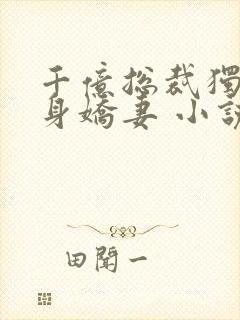 千億总裁獨
身嬌妻 小説
田聞一